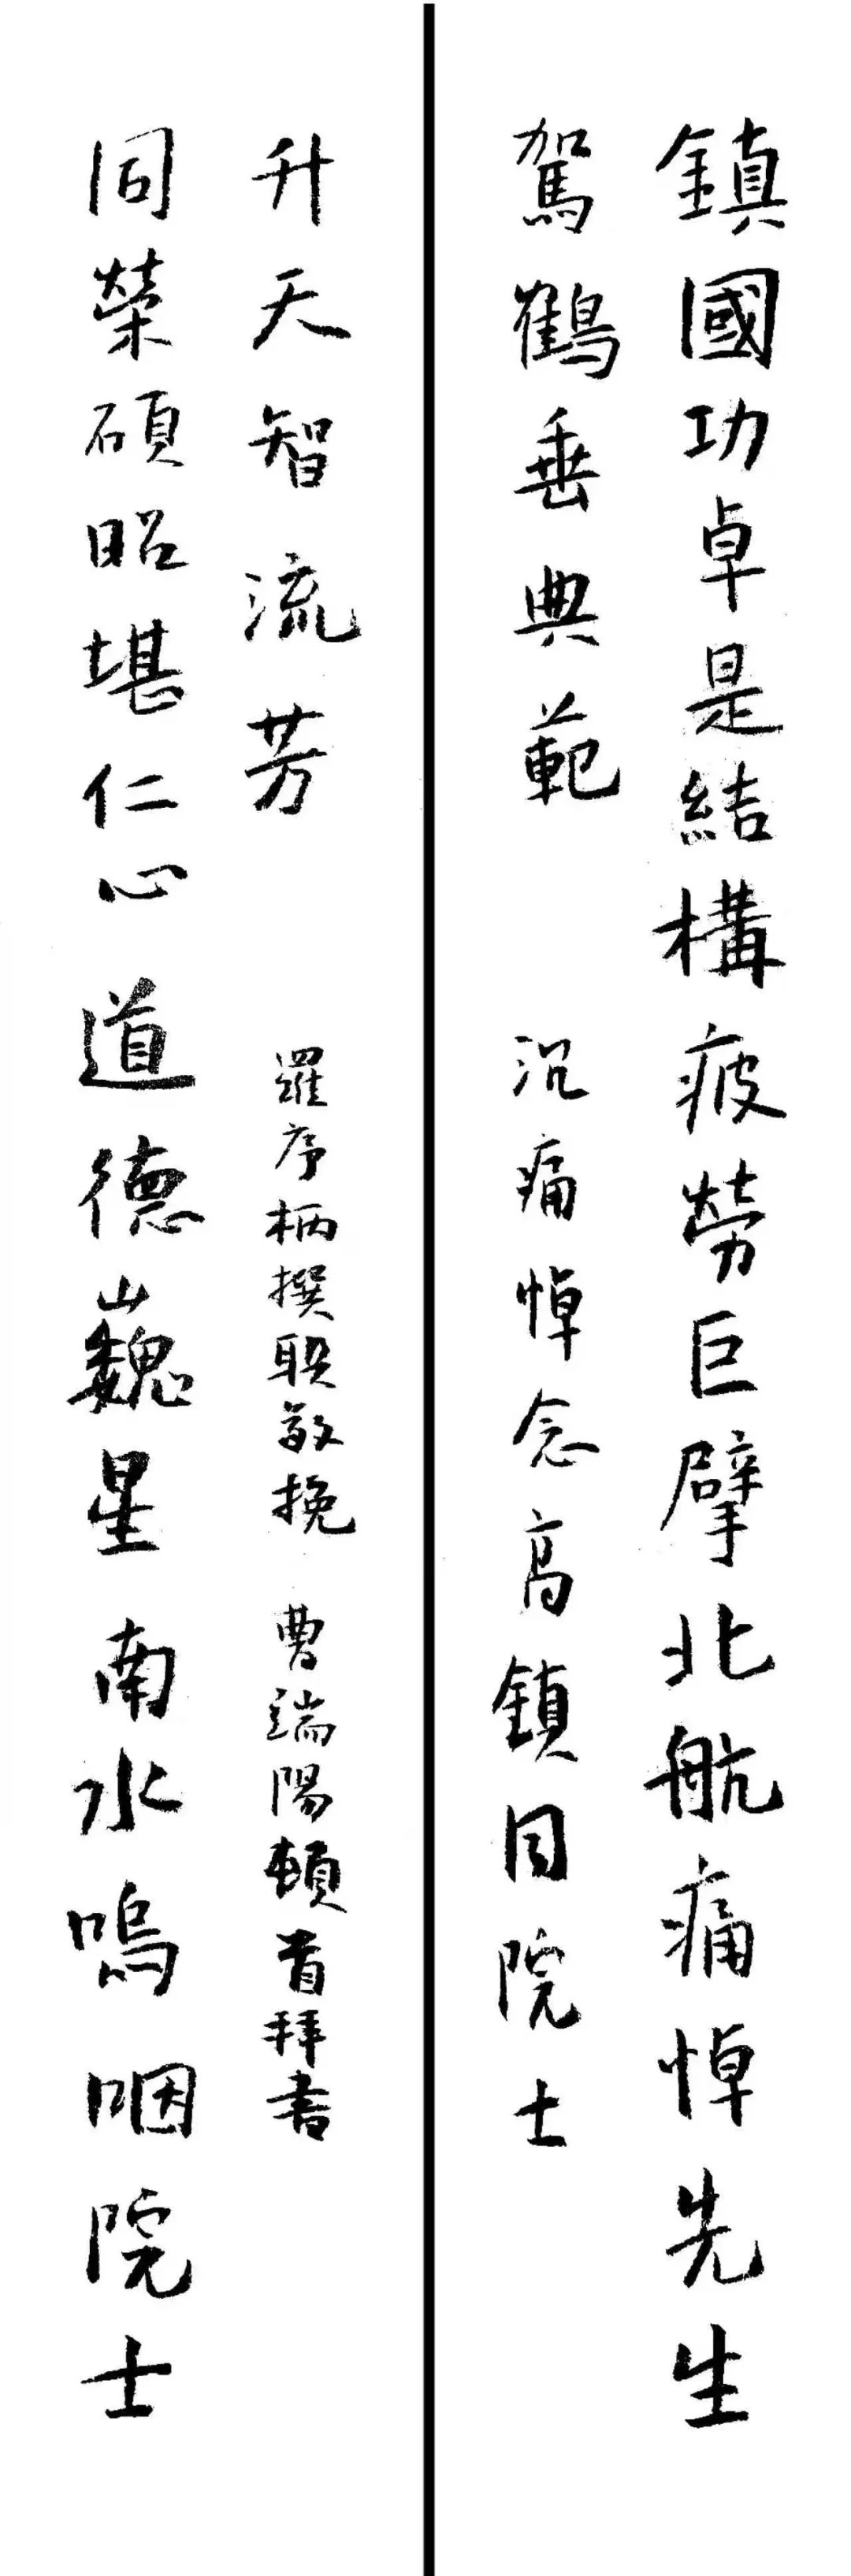 鎮國功卓是結構疲勞巨擘北航痛悼先生
駕鶴垂典範
沉痛悼念高鎮同院士
同榮碩昭堪仁心道德巍星南水嗚咽院士
升天智流芳
羅序柄撰联敬挽
曹端陽頓首拜書